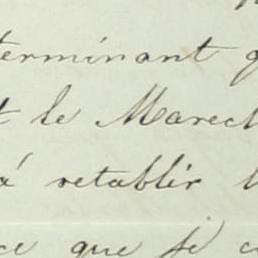 terminant q
t le Marech
à retablir l
ce que je c